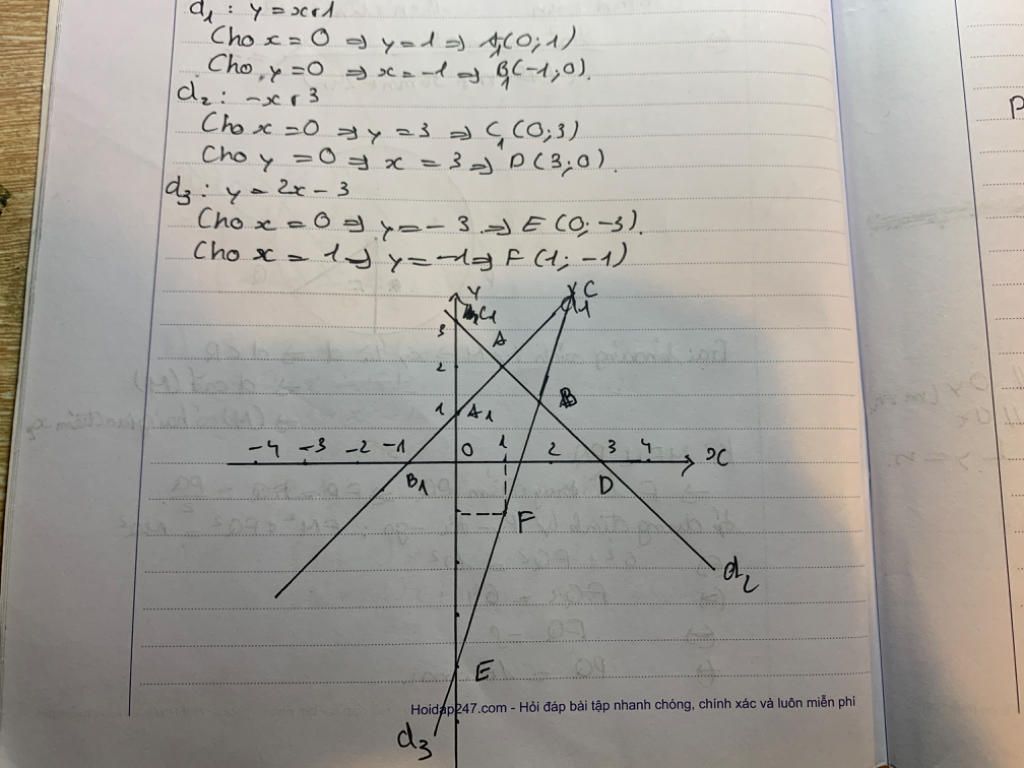 d1 : y = x+1
Cho x = 0 ⇒ y = 1 ⇒ A1(0;1)
Cho y = 0 ⇒ x = -1 ⇒ B1(-1;0).
d2 : -x+3
Cho x = 0 ⇒ y = 3 ⇒ C1(0;3)
Cho y = 0 ⇒ x = 3 ⇒ D(3;0).
d3 : y = 2x - 3
Cho x = 0 ⇒ y = -3 ⇒ E(0;-3).
Cho x = 1 ⇒ y = -1 ⇒ F(1;-1)
y C
C1 d1
3 A
2
1 A1 B
-4 -3 -2 -1 0 1 2 3 4 x
B1 D
F
d2
E
Hoidap247.com - Hỏi đáp bài tập nhanh chóng, chính xác và luôn miễn phí
d3